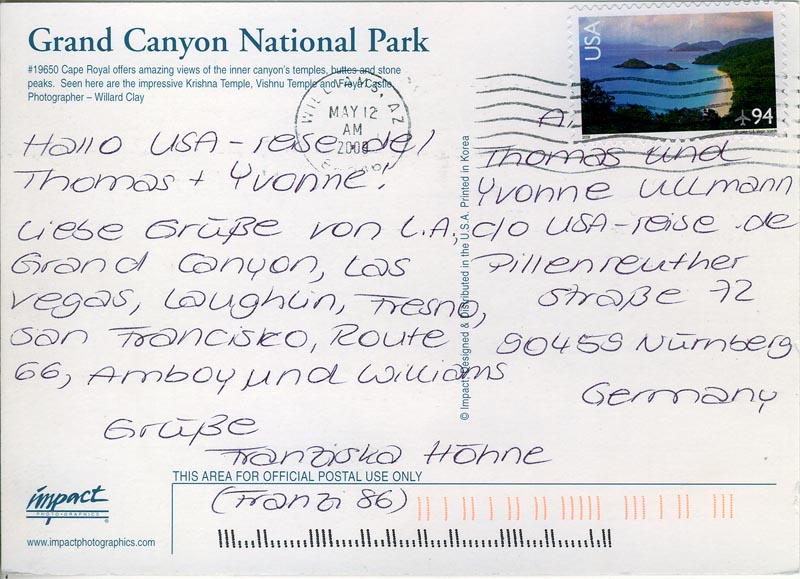 Grand Canyon National Park
#19650 Cape Royal offers amazing views of the inner canyon's temples, buttes and stone
peaks. Seen here are the impressive Krishna Temple, Vishnu Temple and Freya Castle.
Photographer – Willard Clay
USA
94
WILLIAMS, AZ
MAY 12
AM
2008
Hallo USA-reise.de!
Thomas + Yvonne!
Liebe Grüße von L.A.,
Grand Canyon, Las
Vegas, Laughlin, Fresno,
San Francisko, Route
66, Amboy und Williams
Grüße
Franziska Höhne
(Franzi 86)
© Impact Designed & Distributed in the U.S.A. Printed in Korea
Thomas und
Yvonne Ullmann
c/o USA-reise.de
Pillenreuther
Straße 72
90459 Nürnberg
Germany
THIS AREA FOR OFFICIAL POSTAL USE ONLY
impact
PHOTO-GRAPHICS
www.impactphotographics.com